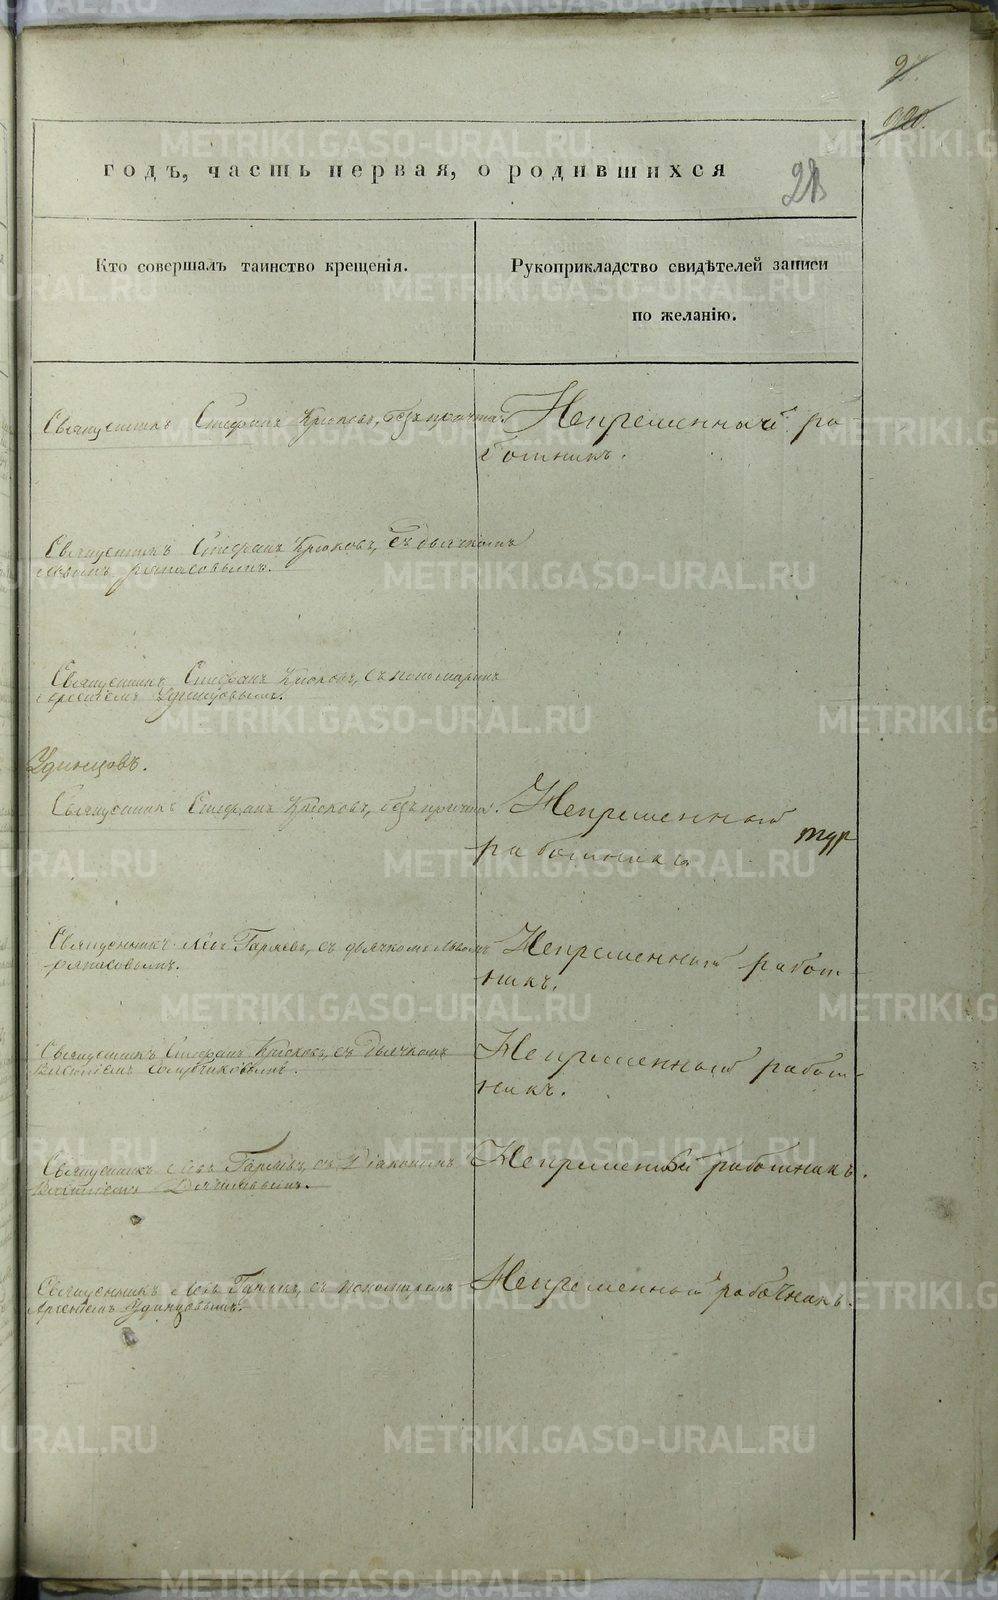 годъ, часть первая, о родившихся
28
Кто совершалъ таинство крещенія.
Рукоприкладство свидѣтелей записи
по желанію.
Священникъ Стефанъ Крюковъ, безъ причта.
Непременный ра
ботникъ.
Священникъ Стефанъ Крюковъ, съ дьячкомъ
Священникъ Стефанъ Крюковъ, съ пономаремъ
Удинцовымъ.
Удинцовъ.
Священникъ Стефанъ Крюковъ, безъ причта.
Непременный
работникъ
Священникъ Левъ Гаряевъ, съ дьячкомъ Львомъ
Непременный работ-
никъ.
Священникъ Стефанъ Крюковъ, съ дьячкомъ
Непременный работ-
никъ.
Священникъ Левъ Гаряевъ, съ Діакономъ
Непременный работникъ.
Священникъ Левъ съ пономаремъ
Арсеніемъ Удинцовымъ.
Непременный работникъ.
METRIKI.GASO-URAL.RU